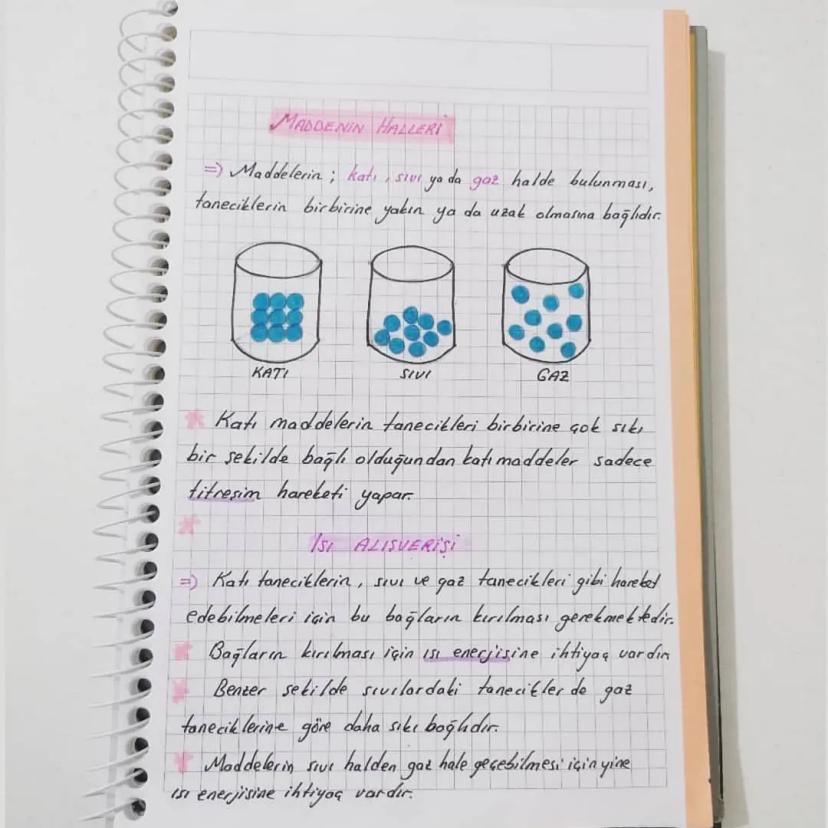 MADDENİN HALLERİ
=) Maddelerin ; katı , sıvı ya da gaz halde bulunması,
taneciklerin birbirine yakın ya da uzak olmasına bağlıdır.
KATI SIVI GAZ
* Katı maddelerin tanecikleri birbirine çok sıkı
bir şekilde bağlı olduğundan katı maddeler sadece
titreşim hareketi yapar.
*
ISI ALIŞVERİŞİ
=) Katı taneciklerin, sıvı ve gaz tanecikleri gibi hareket
edebilmeleri için bu bağların kırılması gerekmektedir.
* Bağların kırılması için ısı enerjisine ihtiyaç vardır.
* Benzer şekilde sıvılardaki tanecikler de gaz
taneciklerine göre daha sıkı bağlıdır.
* Maddelerin sıvı halden gaz hale geçebilmesi için yine
ısı enerjisine ihtiyaç vardır.